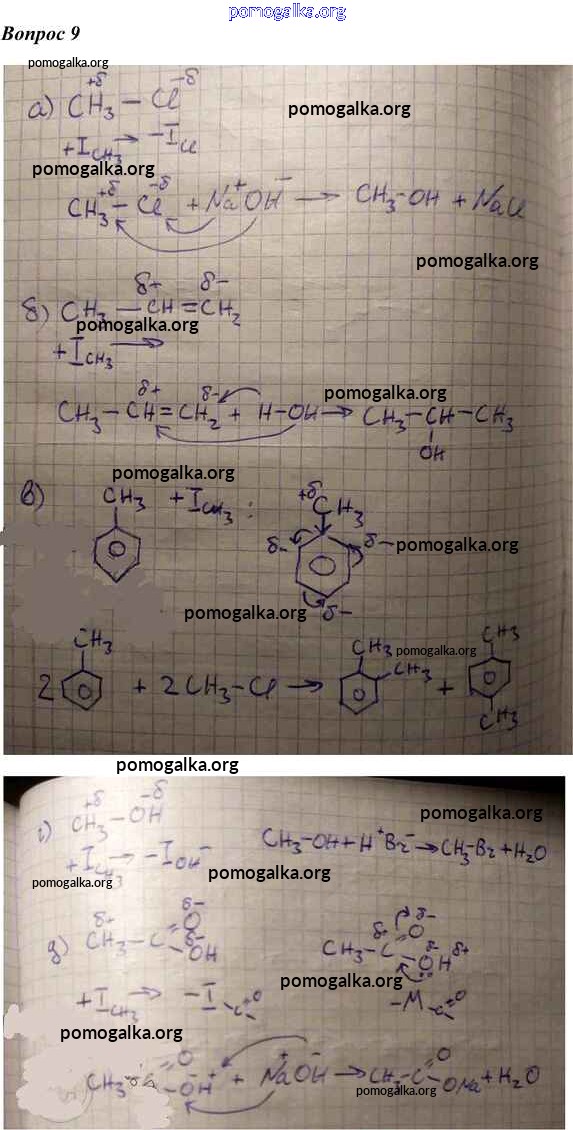 pomogalka.org
Вопрос 9
pomogalka.org
+δ −δ
а) CH3 − Cl pomogalka.org
+I CH3 → −I Cl
pomogalka.org
+δ −δ
CH3 − Cl + Na+ OH− → CH3−OH + NaCl
pomogalka.org
δ+ δ−
б) CH3 − CH = CH2
pomogalka.org
+I CH3
pomogalka.org
δ+ δ−
CH3 − CH = CH2 + H−OH → CH3−CH−CH3
OH
pomogalka.org
в) CH3 +I CH3 : +δ CH3
δ− δ− pomogalka.org
pomogalka.org δ−
CH3 CH3 pomogalka.org CH3
2 + 2CH3−Cl → CH3 +
CH3
pomogalka.org
+δ −δ
г) CH3 − OH pomogalka.org
CH3−OH + H+Br− → CH3−Br + H2O
+I CH3 → −I OH−
pomogalka.org pomogalka.org
δ+ δ− δ+ δ−
д) CH3 − C O OH δ− CH3 − C O OH δ− δ+
pomogalka.org
+I CH3 −I C O −M C O
pomogalka.org
CH3 O OH+ + Na+ OH− → CH3−C O ONa + H2O
pomogalka.org